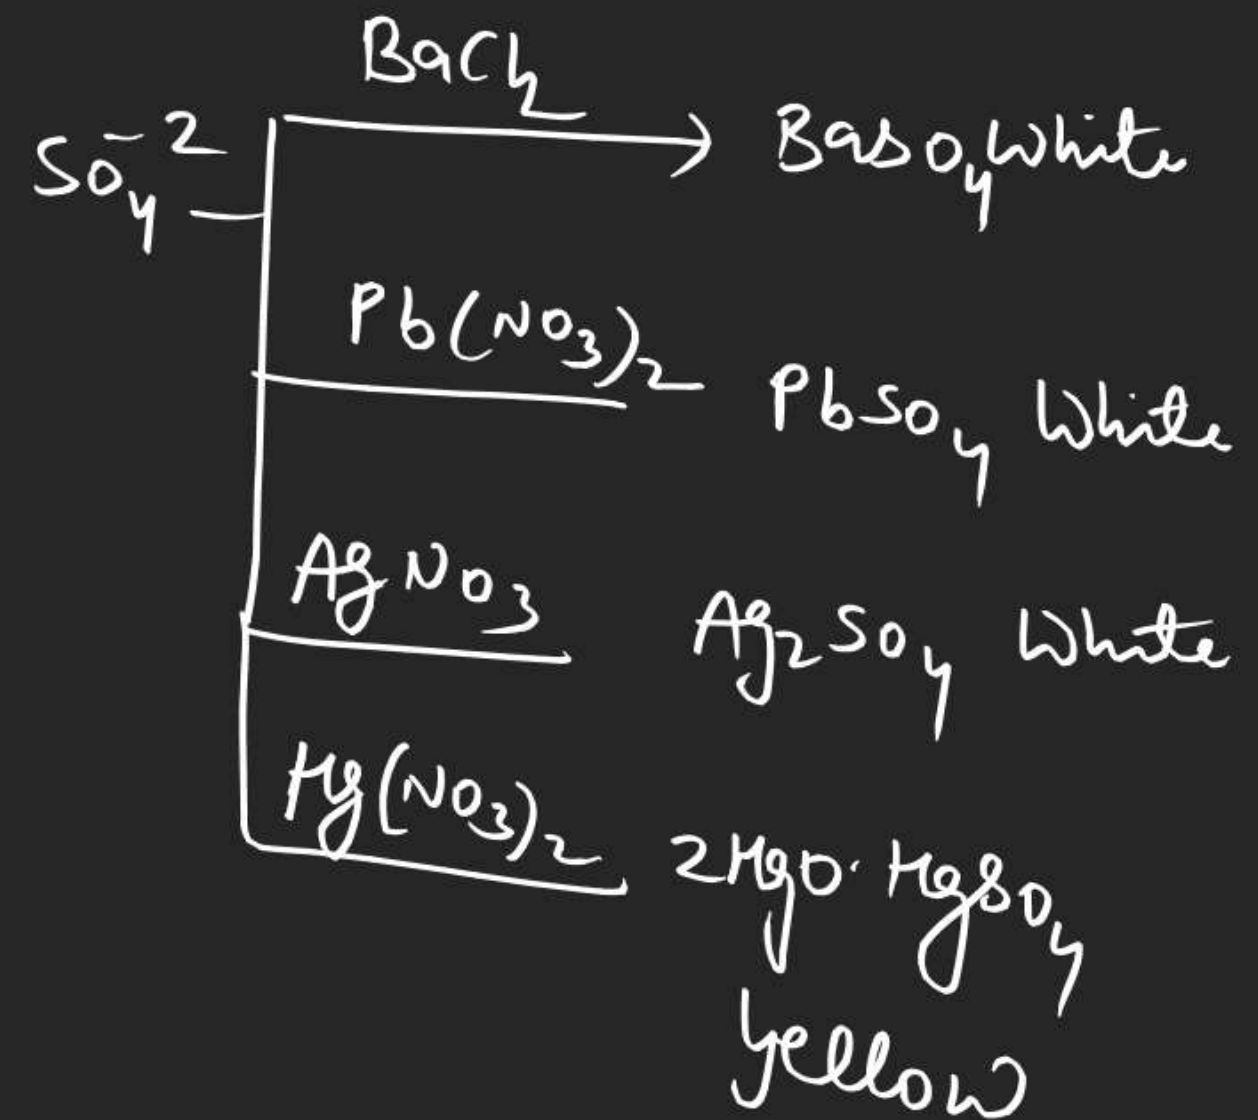 BaCl2
SO4-2 BaSO4 White
Pb(NO3)2
PbSO4 White
AgNO3
Ag2SO4 White
Hg(NO3)2
2HgO·HgSO4
yellow